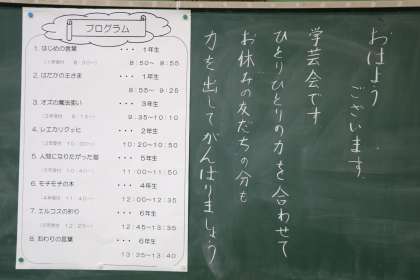 プログラム
1. はじめの言葉 ・・・ 1年生
8:50～ 8:55
2. はだかの王さま ・・・ 1年生
8:55～ 9:25
3. オズの魔法使い ・・・ 3年生
9:35～10:10
4. レエカリクッヒ ・・・ 2年生
10:20～10:50
5. 人間になりたがった猫 ・・・ 5年生
11:00～11:50
6. モチモチの木 ・・・ 4年生
12:00～12:35
7. エルコスの祈り ・・・ 6年生
12:45～13:35
8. おわりの言葉 ・・・ 6年生
13:35～13:40
おはよう
ございます。
学芸会です
ひとりひとりの力を合わせて
お休みの友だちの分も
力を出してがんばりましょう